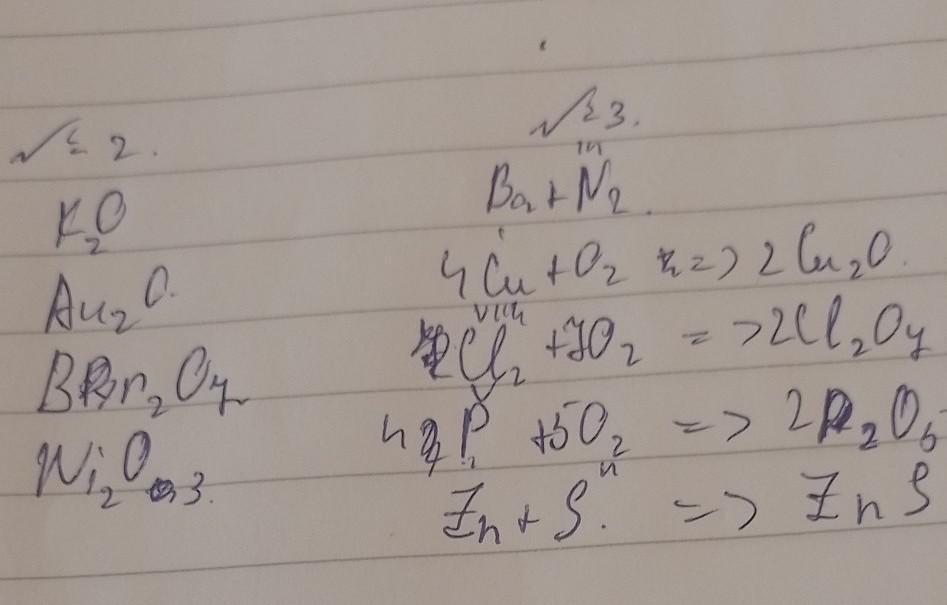 № 2.
K₂O
Au₂O.
Br₂O₇
Ni₂O₃.
№ 3.
III
Ba + N₂.
I
4Cu + O₂ => 2Cu₂O.
VII
2Cl₂ + 7O₂ => 2Cl₂O₇
V
4P + 5O₂ => 2P₂O₅
II
Zn + S. => ZnS